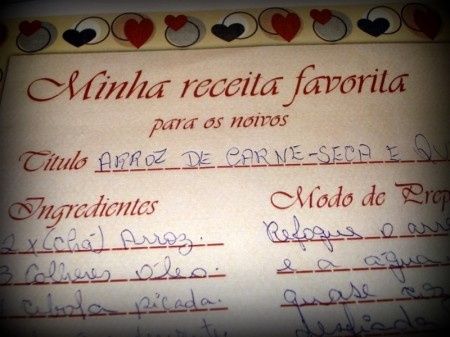 Minha receita favorita
para os noivos
Título ARROZ DE CARNE-SECA E QU
Ingredientes
2 x (chá) Arroz.
3 colheres óleo.
1 cebola picada.
Modo de Prep
Refogue o arr
e a água
quase
desfiada